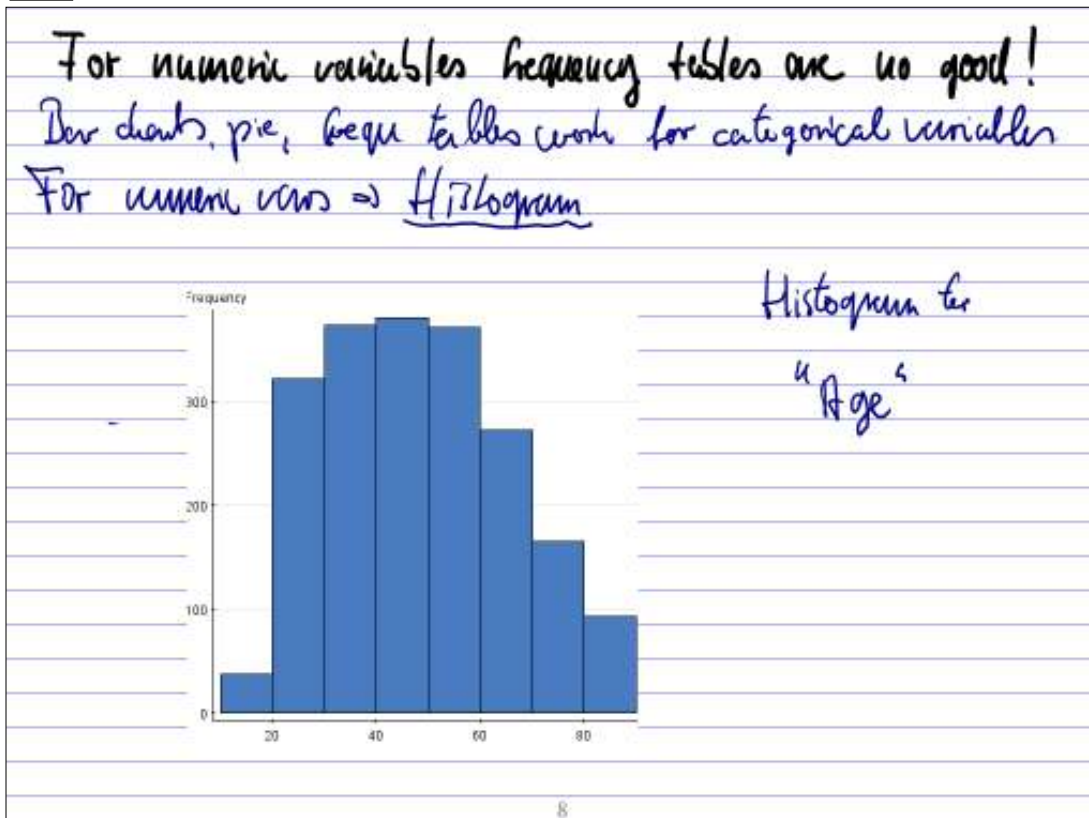 For numeric variables frequency tables are no good!
Bar charts, pie, frequ tables work for categorical variables
For numeric vars => Histogram
Frequency
Histogram for
"Age"
300
200
100
0
20 40 60 80
8